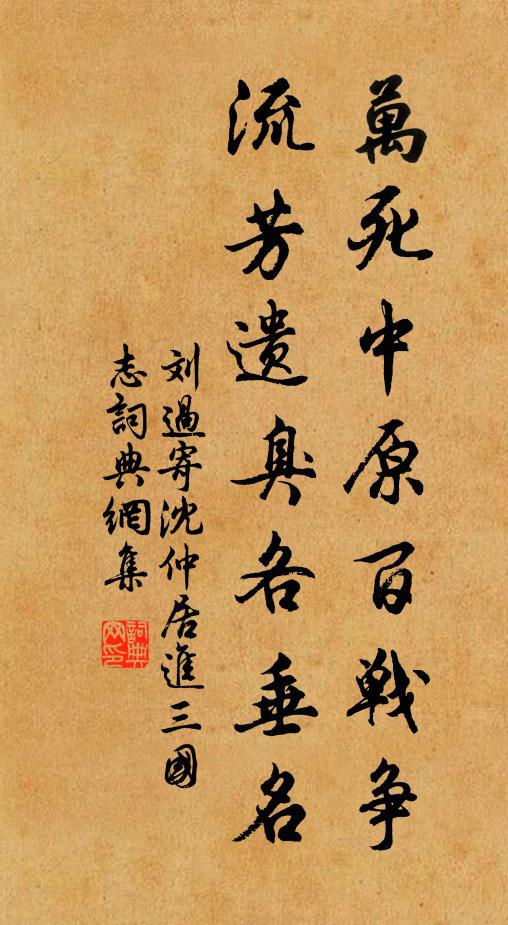 萬死中原百戦争
流芳遺臭各垂名
刘過寄沈仲居進三國
志詞典網集
詞典網印